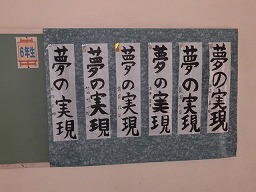 6年生
夢の実現
夢の実現
夢の実現
夢の実現
夢の実現
夢の実現